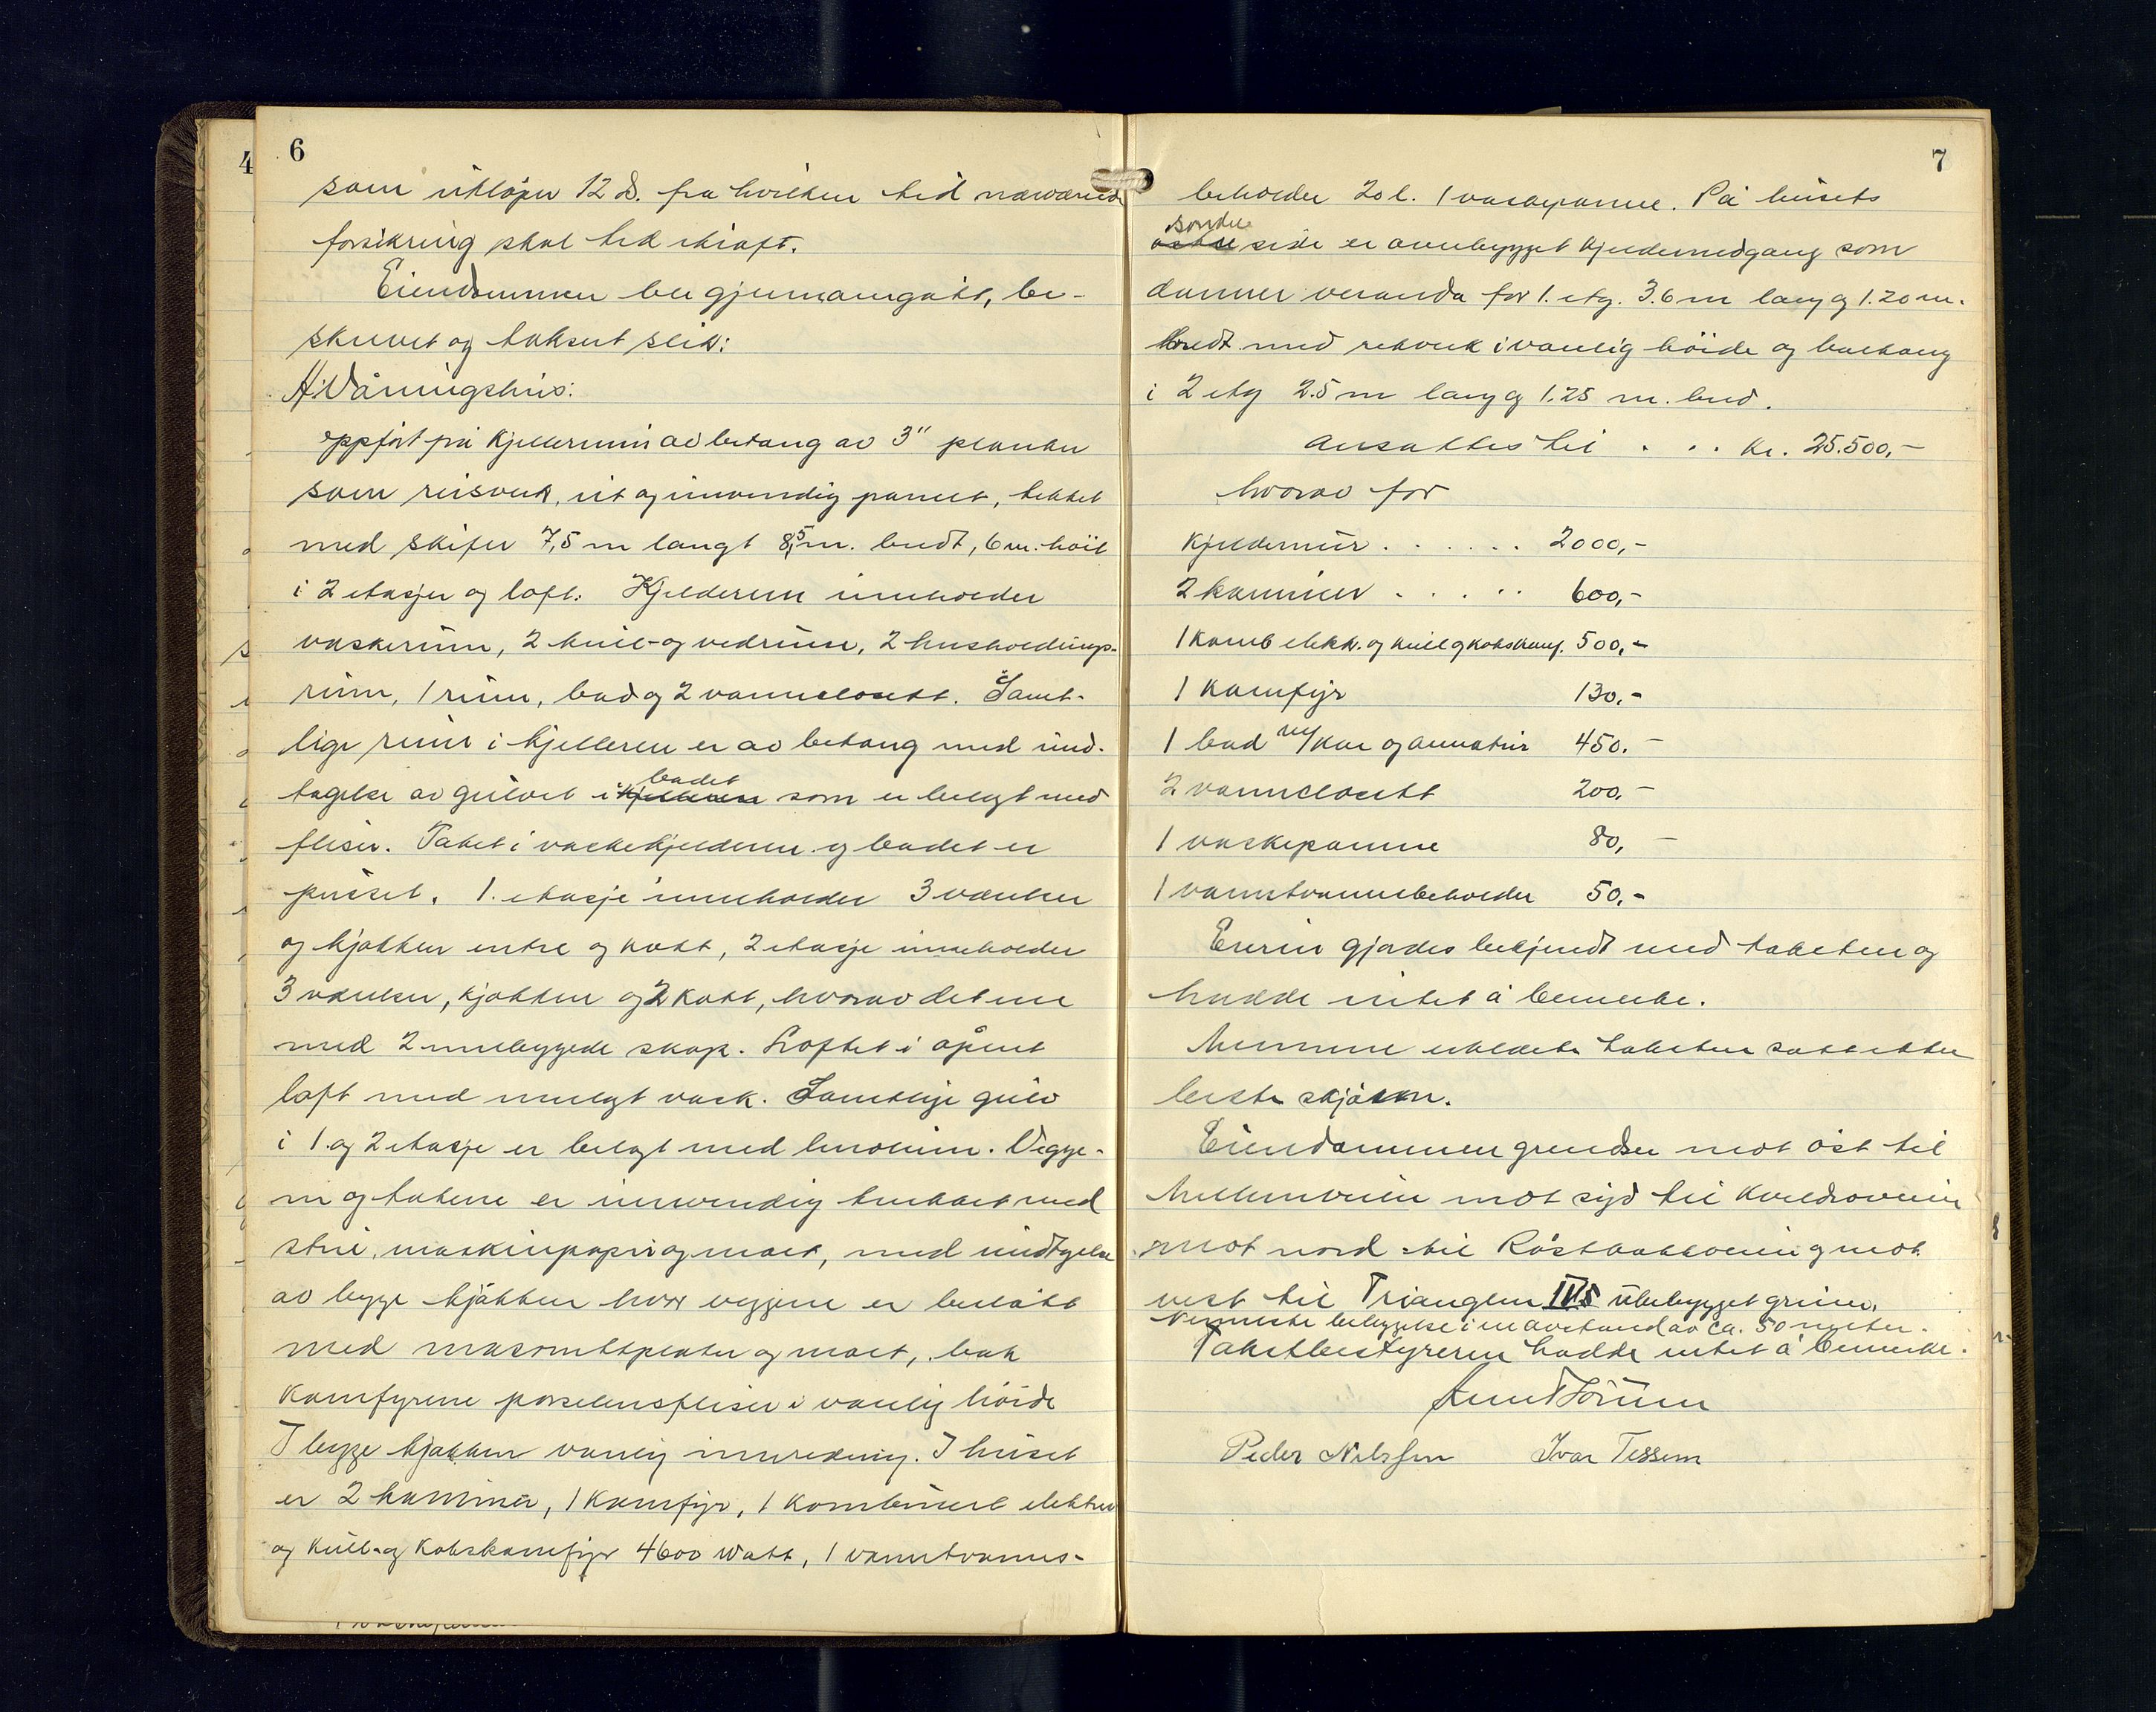 6
som utløper 12 d. fra hvilken tid nærværende
forsikring skal tre i kraft.
Eiendommen ble gjennemgått, be-
skrevet og taksert slik:
A. Våningshus:
oppført på kjellermur av betong av 3" planker
som reisverk, ut og innvendig panelt, tekket
med skifer 7,5 m langt 8,5 m. bredt, 6 m. höit
i 2 etasjer og loft. Kjelderen inneholder
vaskerum, 2 kull- og vedrum, 2 husholdnings-
rum, 1 rum, bad og 2 vannclosett. Samt-
lige rum i kjelleren er av betong med und-
tagelse av gulvet i badet som er belagt med
fliser. Taket i vaskekjelderen og badet er
pusset. 1. etasje inneholder 3 værelser
og kjøkken entre og kott, 2 etasje inneholder
3 værelser, kjøkken og 2 kott, hvorav det ene
med 2 innebyggede skap. Loftet i åpent
loft med innlagt vask. Samtlige gulv
i 1. og 2 etasje er belagt med linoleum. Vegge-
ne og takene er innvendig trukket med
strie, maskinpapir og malt, med undtagelse
av begge kjøkken hvor veggene er beslått
med masonittplater og malt, bak
komfyrene porselensfliser i vanlig höide
I begge kjøkken vanlig innredning. I huset
er 2 kaminer, 1 komfyr, 1 kombinert elektrisk
og kull- og kokskomfyr 4600 watt, 1 varmtvanns-
7
beholder 20 l. 1 vaskepanne. På husets
söndre
østre side er ovenbygget kjeldernedgang som
danner veranda for 1. etg. 3.6 m lang og 1.20 m.
bredt med rekverk i vanlig höide og balkong
i 2 etg 2.5 m lang og 1.25 m. bred.
Ansattes til . . . kr. 25.500,-
hvorav for
Kjeldermur . . . . . . 2000,-
2 kaminer . . . . . 600,-
1 komb elektr. og kull og kokskomf. 500,-
1 komfyr 130,-
1 bad m/kar og armatur 450.-
2 vannclosett 200,-
1 vaskepanne 80,-
1 varmtvannsbeholder 50,-
Eieren gjordes bekjendt med taksten og
hadde intet å bemerke.
Mennene erklærte taksten satt etter
beste skjønn.
Eiendommen grendser mot öst til
Mellemveien mot syd til Kveldroveien
mot nord til Röstbakkveien og mot
vest til Trianglen IV5 ubebygget grunn.
Nermeste bebyggelse i en avstand av ca. 50 meter.
Takstbestyreren hadde intet å bemerke.
Peder Nilssen Ivar Tessem